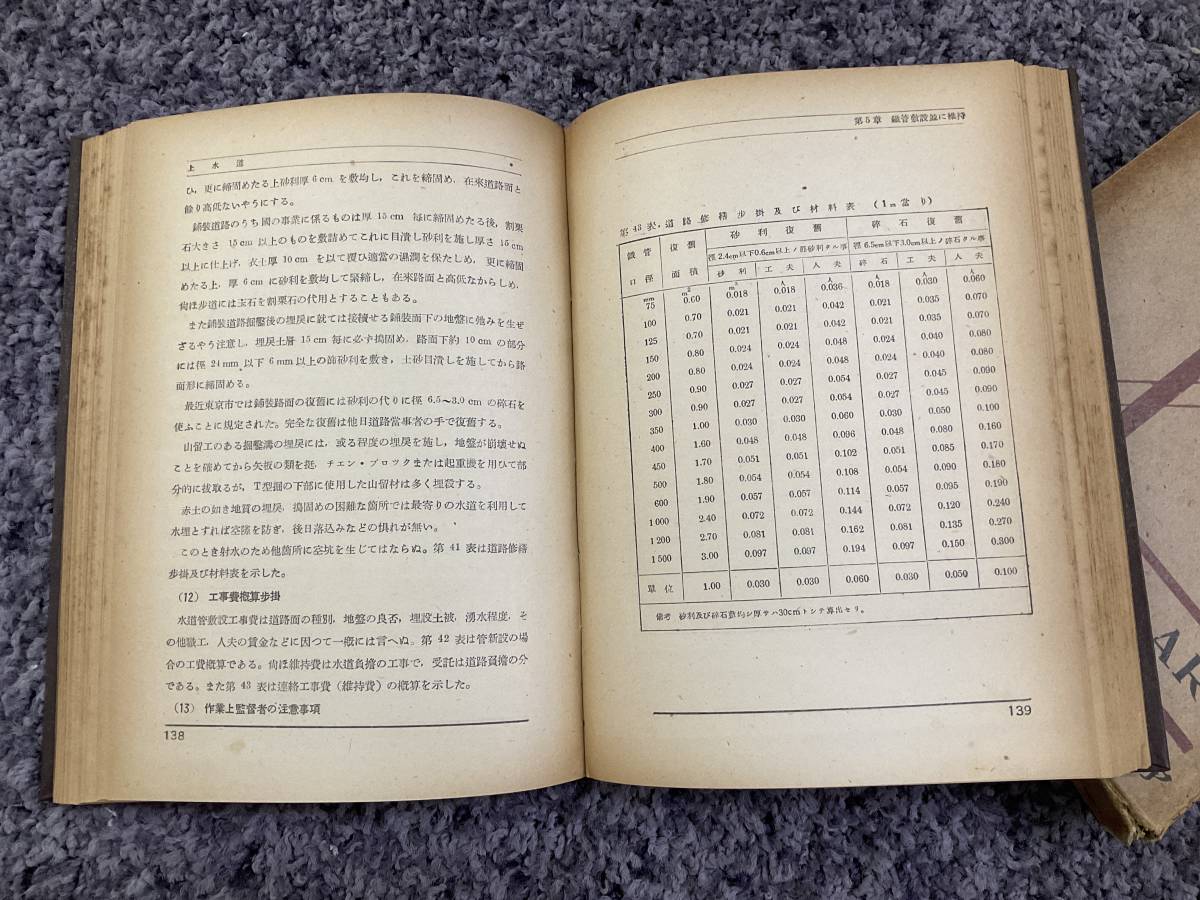 上水道
ひ，更に締固めたる上砂利厚 6 cm を敷均し，これを締固め，在來道路面と
餘り高低ないやうにする。
鋪裝道路のうち國の事業に係るものは厚 15 cm 毎に締固めたる後，割栗
石大きさ 15 cm 以上のものを敷詰めてこれに目潰し砂利を施し厚さ 15 cm
以上に仕上げ，衣土厚 10 cm を以て覆ひ適當の濕潤を保たしめ，更に締固
めたる上，厚 6 cm に砂利を敷均して緊締し，在來路面と高低なからしめ，
尙ほ歩道には玉石を割栗石の代用とすることもある。
また鋪裝道路掘鑿後の埋戾に就ては接續せる鋪裝面下の地盤に弛みを生ぜ
ざるやう注意し，埋戾土層 15 cm 毎に必ず搗固め，路面下約 10 cm の部分
には徑 24 mm 以下 6 mm 以上の篩砂利を敷き，土砂目潰しを施してから路
面形に締固める。
最近東京市では鋪裝路面の復舊には砂利の代りに徑 6.5～3.0 cm の碎石を
使ふことに規定された。完全な復舊は他日道路當事者の手で復舊する。
山留工のある掘鑿溝の埋戾には，或る程度の埋戾を施し，地盤が崩壞せぬ
ことを確めてから矢板の類を挺，チェン・ブロックまたは起重機を用ひて部
分的に拔取るが，T型掘の下部に使用した山留材は多く埋殺する。
赤土の如き地質の埋戾，搗固めの困難な箇所では最寄りの水道を利用して
水埋とすれば空隙を防ぎ，後日落込みなどの惧れが無い。
このとき射水のため他箇所に空坑を生じてはならぬ。第 41 表は道路修繕
歩掛及び材料表を示した。
(12) 工事費概算歩掛
水道管敷設工事費は道路面の種別，地盤の良否，埋設土被，湧水程度，そ
の他職工，人夫の賃金などに因つて一概には言へぬ。第 42 表は管新設の場
合の工費概算である。尙ほ維持費は水道負擔の工事で，受託は道路負擔の分
である。また第 43 表は連絡工事費（維持費）の概算を示した。
(13) 作業上監督者の注意事項
138
第5章 鐵管敷設並に維持
第 43 表．道路修繕歩掛及び材料表 （1m當り）
鐵管口徑 復舊面積 砂利復舊 碎石復舊
徑 2.4cm以下0.6cm以上ノ篩砂利タル事 徑 6.5cm以下3.0cm以上ノ碎石タル事
砂利 工夫 人夫 碎石 工夫 人夫
mm m² m³ 人 人
75 0.60 0.018 0.018 0.036 0.018 0.030 0.060
100 0.70 0.021 0.021 0.042 0.021 0.035 0.070
125 0.70 0.021 0.021 0.042 0.021 0.035 0.070
150 0.80 0.024 0.024 0.048 0.024 0.040 0.080
200 0.80 0.024 0.024 0.048 0.024 0.040 0.080
250 0.90 0.027 0.027 0.054 0.027 0.045 0.090
300 0.90 0.027 0.027 0.054 0.027 0.045 0.090
350 1.00 0.030 0.030 0.060 0.030 0.050 0.100
400 1.60 0.048 0.048 0.096 0.048 0.080 0.160
450 1.70 0.051 0.051 0.102 0.051 0.085 0.170
500 1.80 0.054 0.054 0.108 0.054 0.090 0.180
600 1.90 0.057 0.057 0.114 0.057 0.095 0.190
1000 2.40 0.072 0.072 0.144 0.072 0.120 0.240
1200 2.70 0.081 0.081 0.162 0.081 0.135 0.270
1500 3.00 0.097 0.097 0.194 0.097 0.150 0.300
單位 1.00 0.030 0.030 0.060 0.030 0.050 0.100
備考 砂利及び碎石敷均シ厚サハ30cmトシテ算出セリ。
139
AR